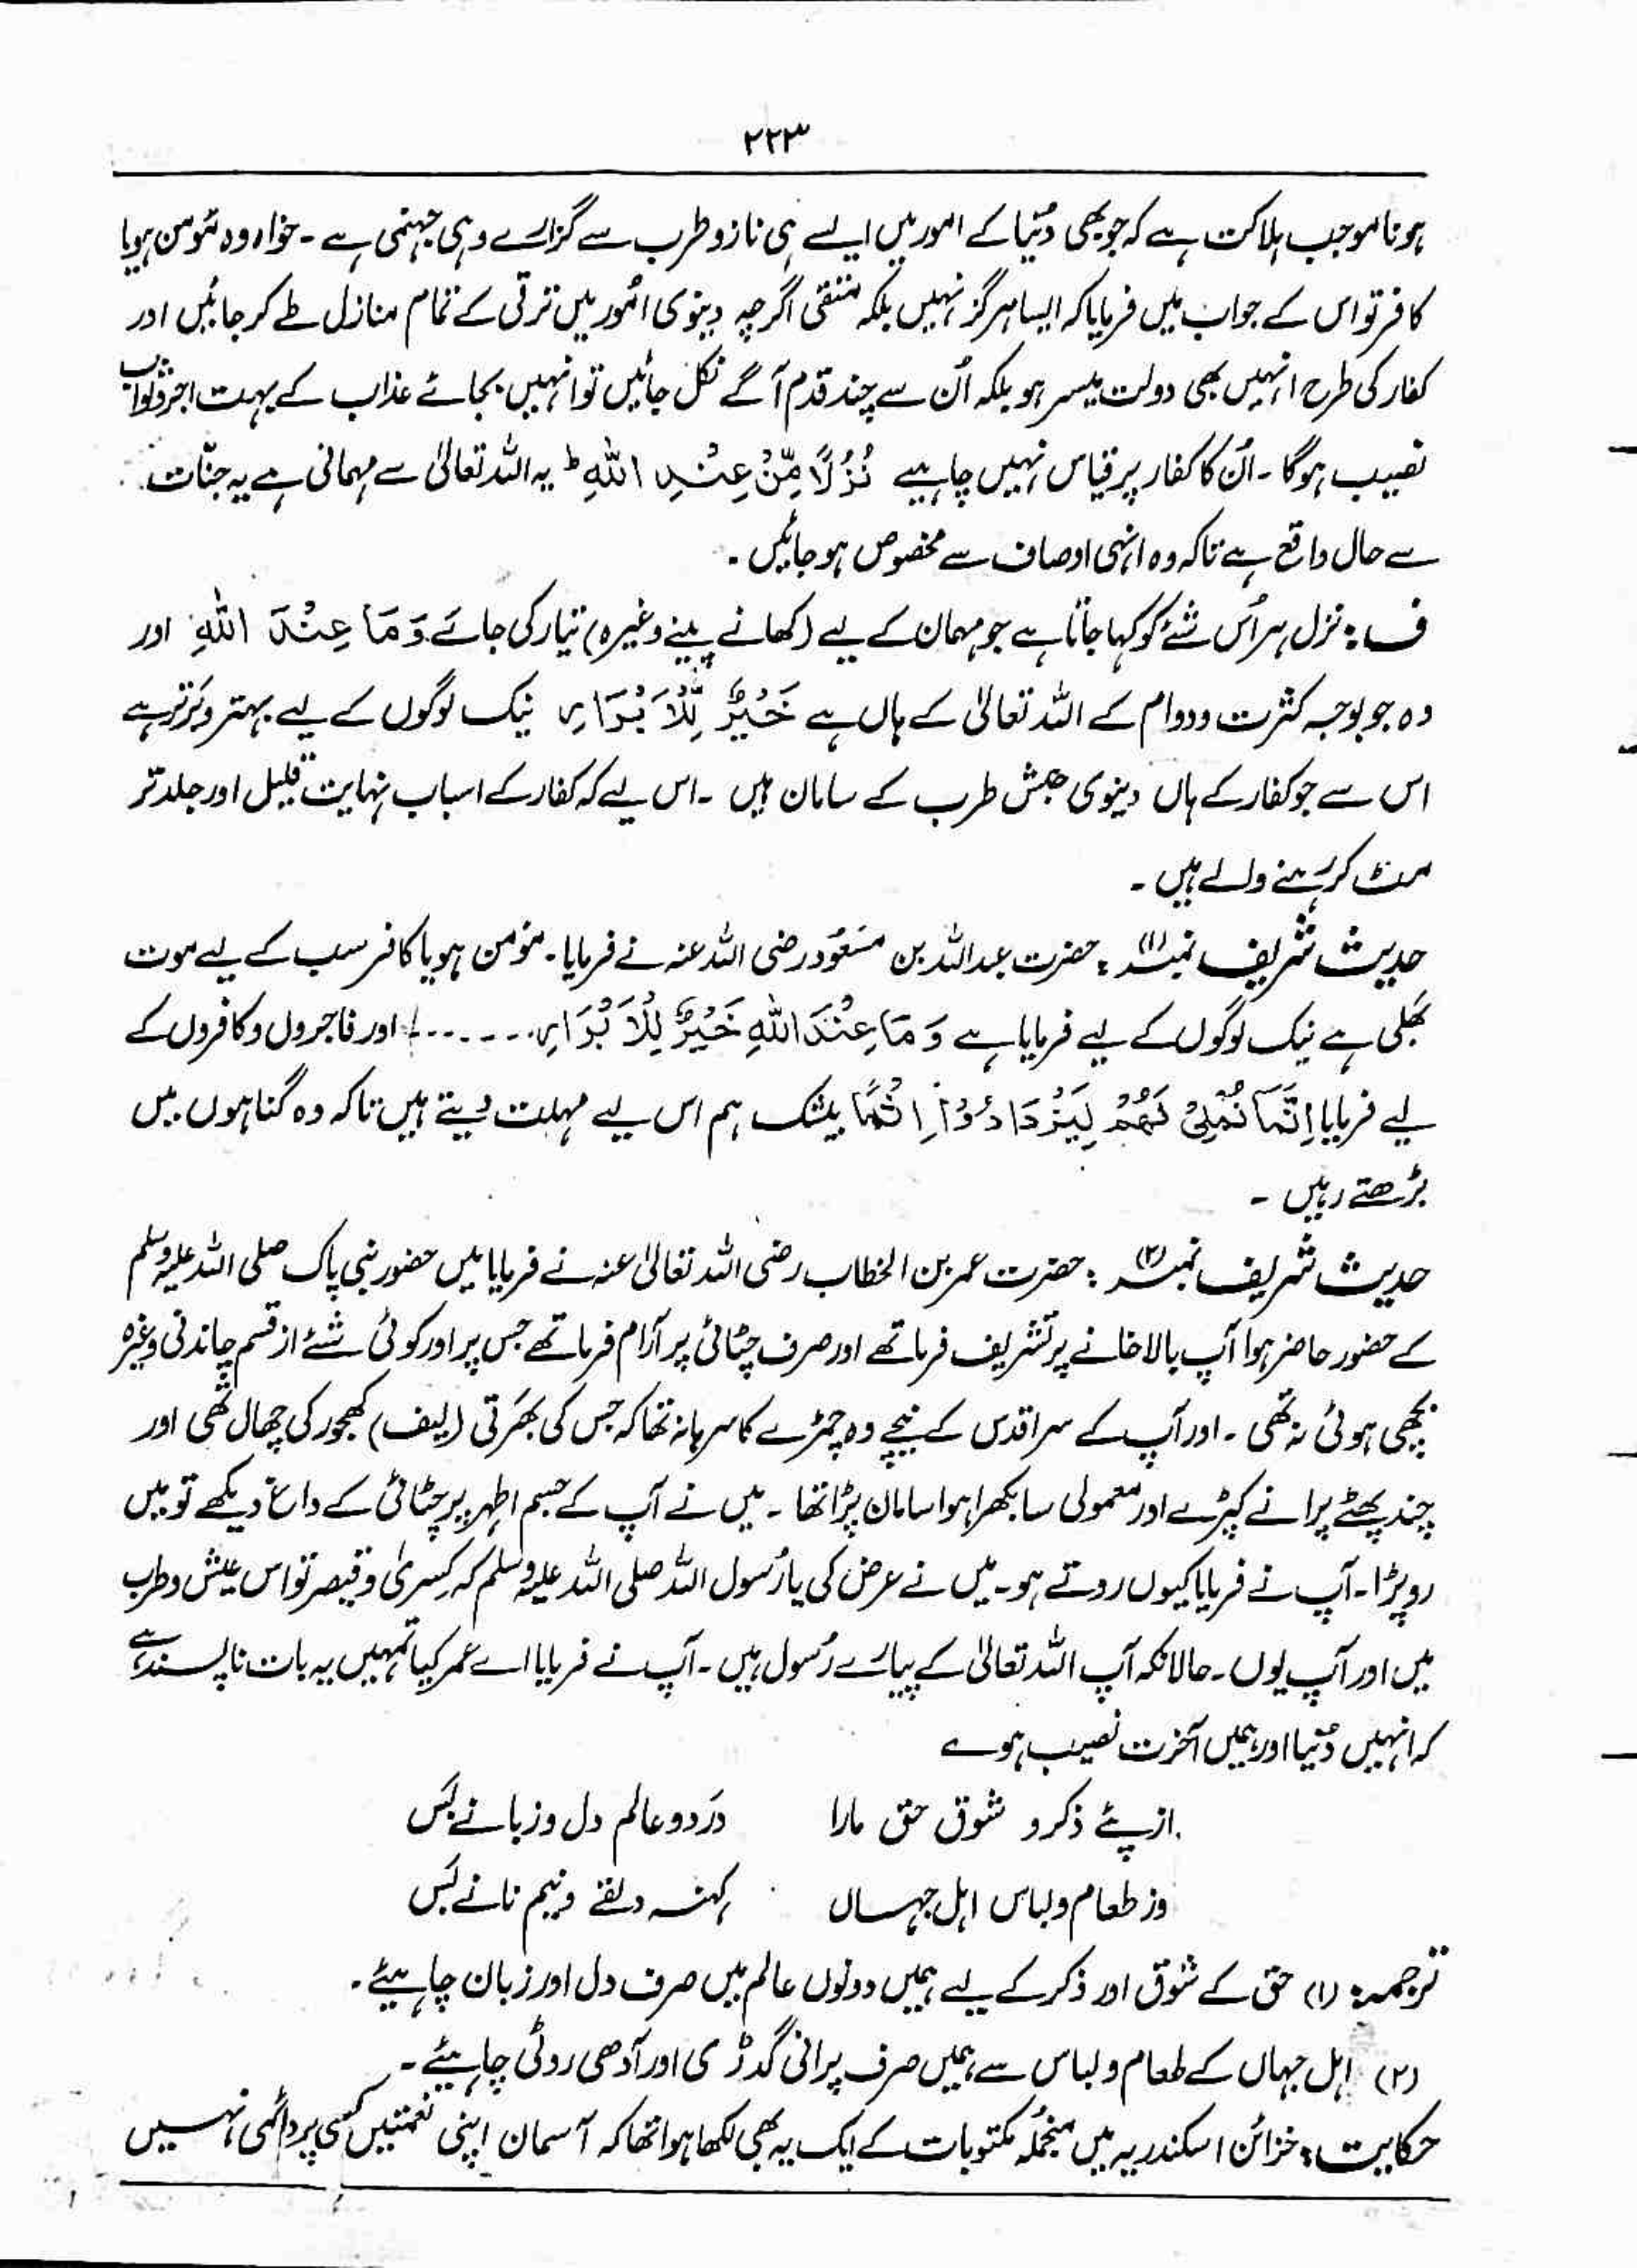 ۲۲۳
ہونا موجب ہلاکت ہے کہ جو بھی دنیا کے امور میں ایسے ہی ناز و طرب سے گزارے وہی جہنمی ہے ۔ خواہ وہ مومن ہو یا
کافر تو اس کے جواب میں فرمایا کہ ایسا ہرگز نہیں بلکہ متقی اگرچہ دینوی امور میں ترقی کے تمام منازل طے کر جائیں اور
کفار کی طرح انہیں بھی دولت میسر ہو بلکہ اُن سے چند قدم آگے نکل جائیں تو انہیں بجائے عذاب کے بہت اجر و ثواب
نصیب ہوگا ۔ اُن کا کفار پر قیاس نہیں چاہیے نُزُلًا مِّنْ عِنْدِ اللّٰهِ ؕ یہ اللہ تعالیٰ سے مہمانی ہے یہ جنّات
سے حال واقع ہے تاکہ وہ انہی اوصاف سے مخصوص ہو جائیں ۔
ف : نزل ہر اُس شئے کو کہا جاتا ہے جو مہمان کے لیے (کھانے پینے وغیرہ) تیار کی جائے وَمَا عِنْدَ اللّٰهِ اور
وہ جو بوجہ کثرت و دوام کے اللہ تعالیٰ کے ہاں ہے خَيْرٌ لِّلْاَبْرَارِ نیک لوگوں کے لیے بہتر و برتر ہے
اس سے جو کفار کے ہاں دینوی عیش طرب کے سامان ہیں ۔ اس لیے کہ کفار کے اسباب نہایت قلیل اور جلد تر
مٹ کر رہنے والے ہیں ۔
حدیث شریف نمبر (۱) : حضرت عبداللہ بن مسعُود رضی اللہ عنہ نے فرمایا ۔ مؤمن ہو یا کافر سب کے لیے موت
بھلی ہے نیک لوگوں کے لیے فرمایا ہے وَمَا عِنْدَ اللّٰهِ خَيْرٌ لِّلْاَبْرَارِ ...... اور فاجروں و کافروں کے
لیے فرمایا اِنَّمَا نُمْلِیْ لَهُمْ لِيَزْدَادُوْٓا اِثْمًا بیشک ہم اس لیے مہلت دیتے ہیں تاکہ وہ گناہوں میں
بڑھتے رہیں ۔
حدیث شریف نمبر (۲) : حضرت عمر بن الخطاب رضی اللہ تعالیٰ عنہ نے فرمایا میں حضور نبی پاک صلی اللہ علیہ وسلم
کے حضور حاضر ہوا آپ بالا خانے پر تشریف فرما تھے اور صرف چٹائی پر آرام فرما تھے جس پر اور کوئی شئے از قسم چاندنی وغیرہ
بچھی ہوئی نہ تھی ۔ اور آپ کے سر اقدس کے نیچے وہ چمڑے کا سرہانہ تھا کہ جس کی بھرتی (لیف) کھجور کی چھال تھی اور
چند پھٹے پرانے کپڑے اور معمولی سا بکھرا ہوا سامان پڑا تھا ۔ میں نے آپ کے جسم اطہر پر چٹائی کے داغ دیکھے تو میں
رو پڑا ۔ آپ نے فرمایا کیوں روتے ہو ۔ میں نے عرض کی یا رُسول اللہ صلی اللہ علیہ وسلم کہ کسریٰ و قیصر تو اس عیش و طرب
میں اور آپ یوں ۔ حالانکہ آپ اللہ تعالیٰ کے پیارے رُسول ہیں ۔ آپ نے فرمایا اے عمر کیا تمہیں یہ بات ناپسند ہے
کہ انہیں دنیا اور ہمیں آخرت نصیب ہو ے
از پئے ذکر و شوق حق مارا در دو عالم دل و زبانے بس
وز طعام و لباس اہل جہاں کہنہ دلقے و نیم نانے بس
ترجمہ : (۱) حق کے شوق اور ذکر کے لیے ہمیں دونوں عالم میں صرف دل اور زبان چاہیئے ۔
(۲) اہل جہاں کے طعام و لباس سے ہمیں صرف پرانی گدڑی اور آدھی روٹی چاہیئے ۔
حکایت : خزائن اسکندریہ میں منجملہ مکتوبات کے ایک یہ بھی لکھا ہوا تھا کہ آسمان اپنی نعمتیں کسی پر دائمی نہیں